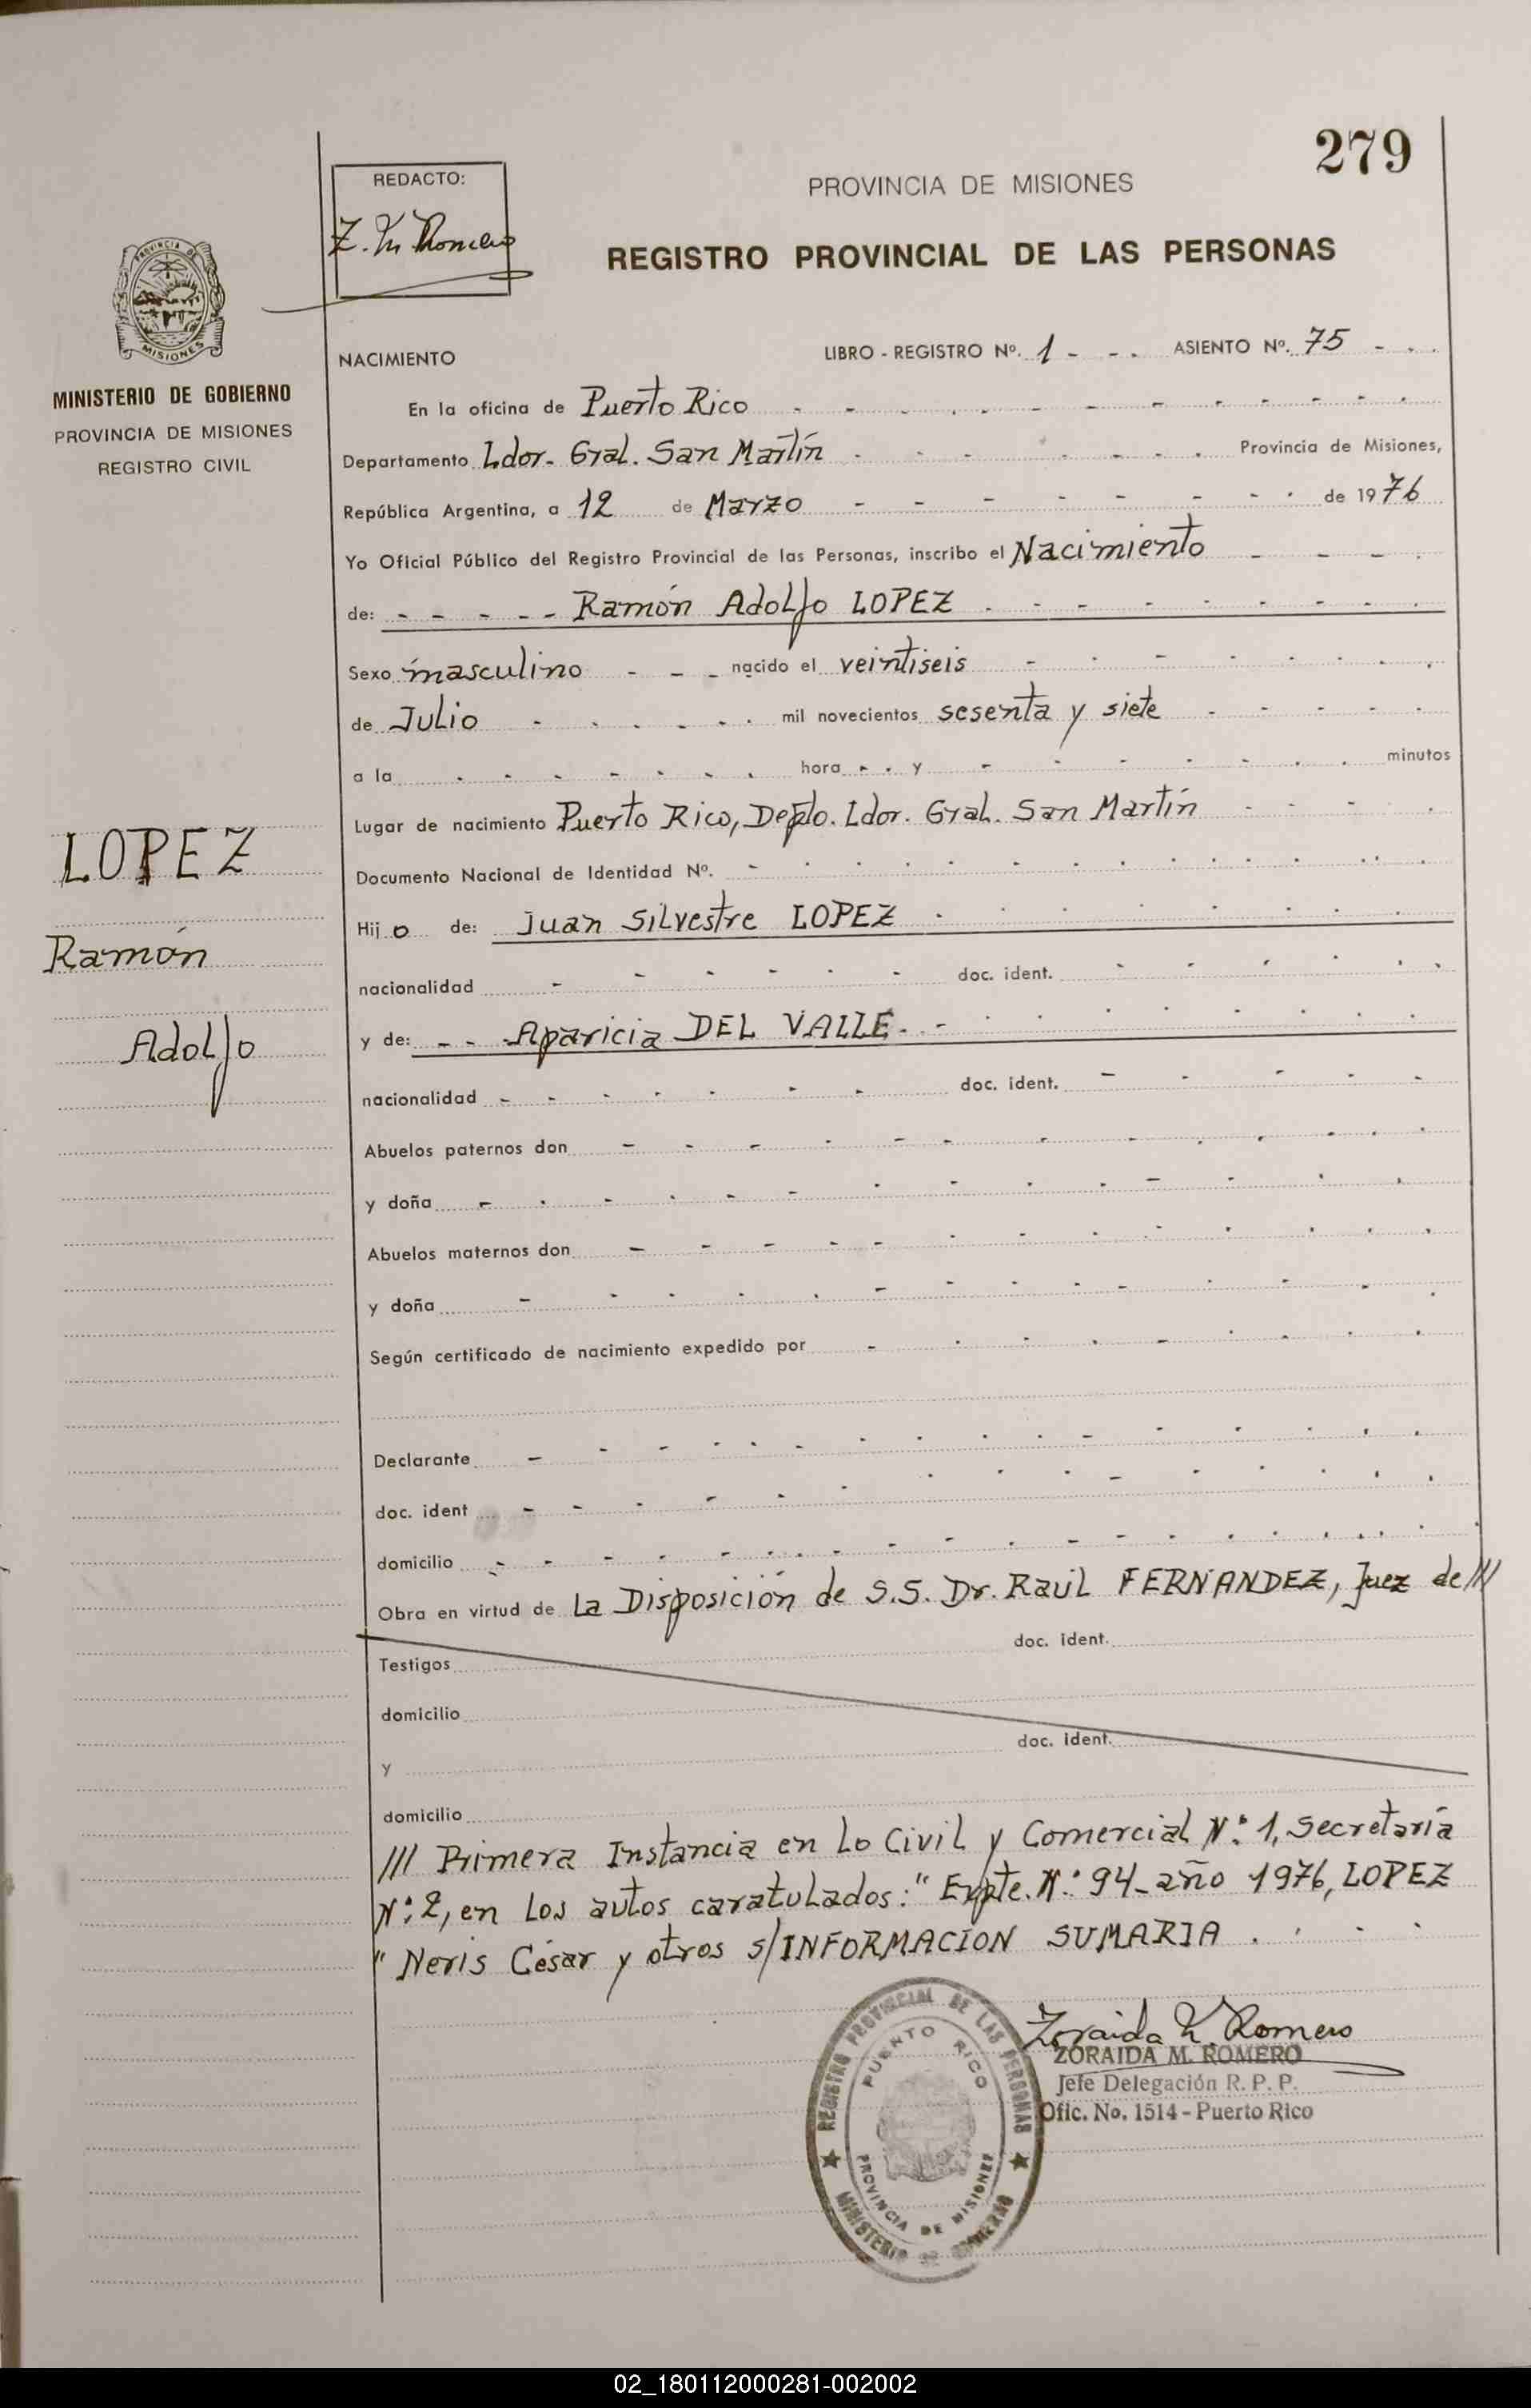 279
REDACTO:
Z. M. Romero
PROVINCIA DE MISIONES
REGISTRO PROVINCIAL DE LAS PERSONAS
PROVINCIA DE
MISIONES
MINISTERIO DE GOBIERNO
PROVINCIA DE MISIONES
REGISTRO CIVIL
NACIMIENTO LIBRO - REGISTRO Nº. 1 - - . ASIENTO Nº. 75 - . .
En la oficina de Puerto Rico
Departamento Ldor. Gral. San Martín Provincia de Misiones,
República Argentina, a 12 de Marzo de 1976
Yo Oficial Público del Registro Provincial de las Personas, inscribo el Nacimiento
de: - - - - - Ramón Adolfo LOPEZ
Sexo masculino - - - nacido el veintiseis
de Julio mil novecientos sesenta y siete
a la hora y minutos
Lugar de nacimiento Puerto Rico, Depto. Ldor. Gral. San Martín
Documento Nacional de Identidad Nº.
Hijo de: Juan Silvestre LOPEZ
nacionalidad doc. ident.
y de: - - - Aparicia DEL VALLE. -
nacionalidad doc. ident.
Abuelos paternos don
y doña
Abuelos maternos don
y doña
Según certificado de nacimiento expedido por
Declarante
doc. ident
domicilio
Obra en virtud de La Disposición de S.S. Dr. Raúl FERNANDEZ, Juez de ///
doc. ident.
Testigos
domicilio
doc. ident.
y
domicilio
/// Primera Instancia en Lo Civil y Comercial Nº: 1, Secretaría
Nº: 2, en Los autos caratulados: " Expte. Nº: 94 - año 1976, LOPEZ
" Neris César y otros s/INFORMACION SUMARIA .
LOPEZ
Ramón
Adolfo
REGISTRO PROVINCIAL DE LAS PERSONAS
PUERTO RICO
PROVINCIA DE MISIONES
MINISTERIO DE GOBIERNO
Zoraida M. Romero
ZORAIDA M. ROMERO
Jefe Delegación R. P. P.
Ofic. No. 1514 - Puerto Rico
02_180112000281-002002